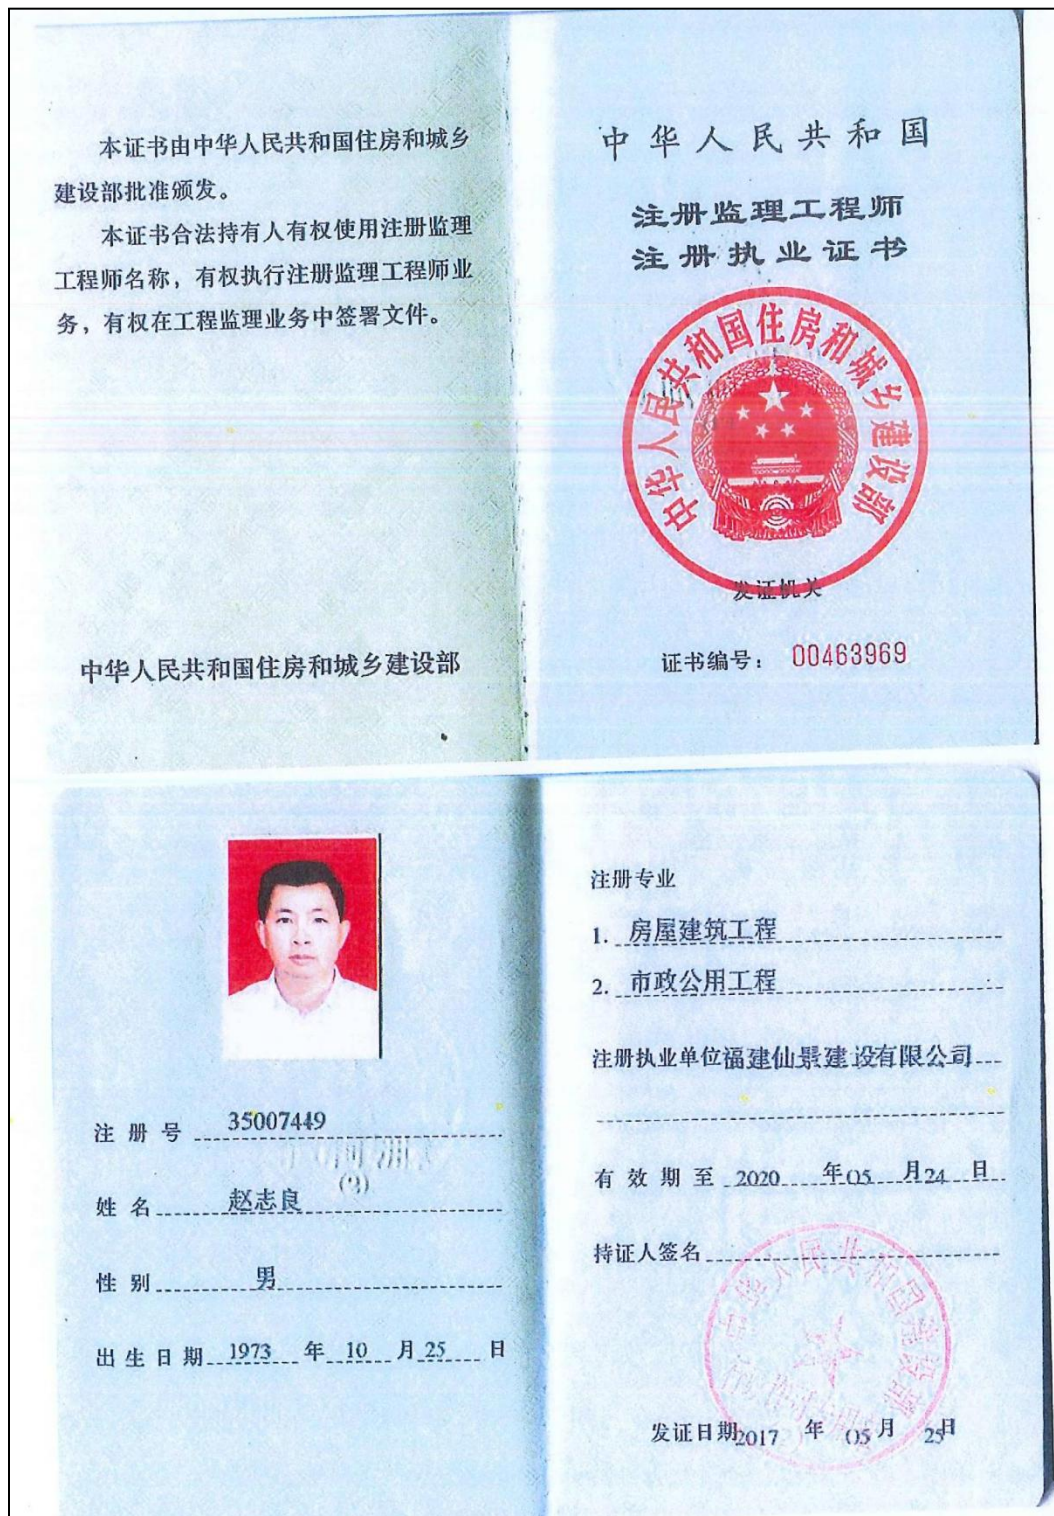 本证书由中华人民共和国住房和城乡
建设部批准颁发。
本证书合法持有人有权使用注册监理
工程师名称，有权执行注册监理工程师业
务，有权在工程监理业务中签署文件。
中华人民共和国住房和城乡建设部
中华人民共和国
注册监理工程师
注册执业证书
中华人民共和国住房和城乡建设部
发证机关
证书编号： 00463969
注 册 号 35007449
(2)
姓 名 赵志良
性 别 男
出 生 日 期 1973 年 10 月 25 日
注册专业
1. 房屋建筑工程
2. 市政公用工程
注册执业单位 福建仙景建设有限公司
有 效 期 至 2020 年 05 月 24 日
持证人签名
中华人民共和国建设部
发证日期 2017 年 05 月 25 日